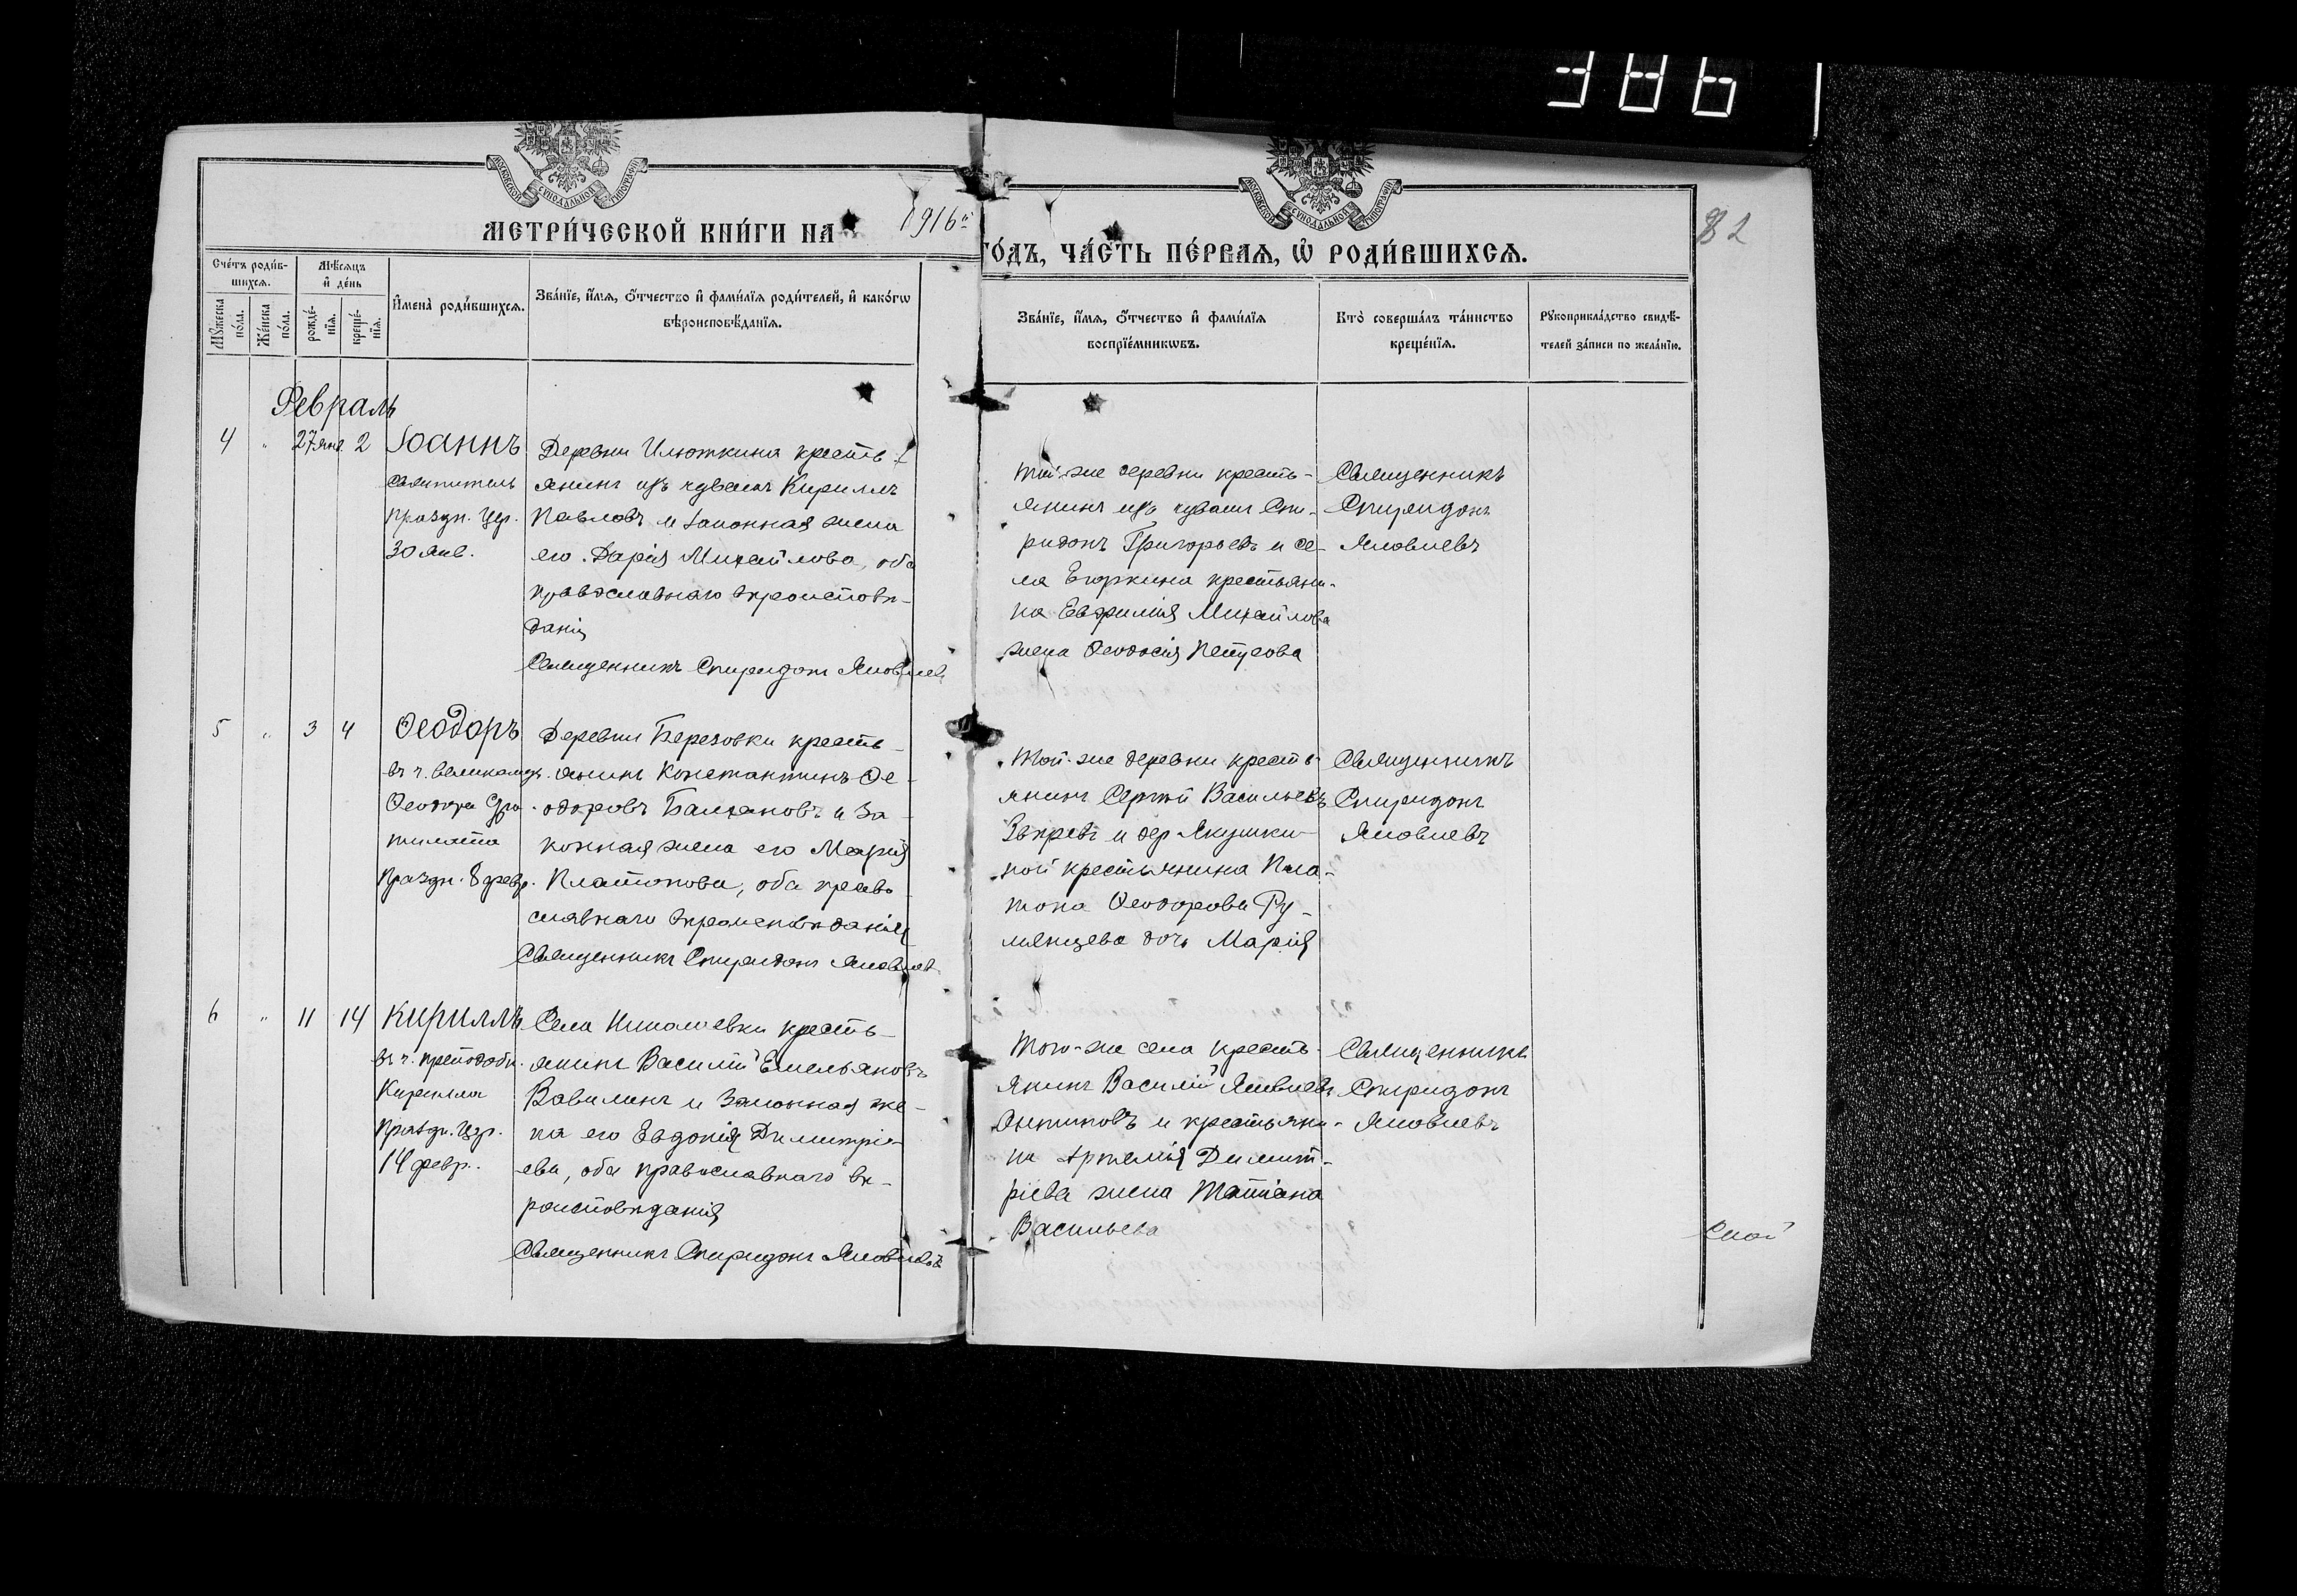 386
МОСКОВСКОЙ СѴНОДАЛЬНОЙ ТИПОГРАФІИ
МОСКОВСКОЙ СѴНОДАЛЬНОЙ ТИПОГРАФІИ
МЕТРИ́ЧЕСКОЙ КНИ́ГИ НА 1916й
ГО́ДЪ, ЧА́СТЬ ПЕ́РВАЯ, Ѡ҆ РОДИ́ВШИХСЯ.
82
Сче́тъ роди́в-
шихся.
Мѣ́сяцъ
и҆ де́нь
Мꙋ́жеска по́ла.
Же́нска по́ла.
рожде́-
нїя.
креще́-
нїя.
И҆мена̀ роди́вшихся.
Зва́нїе, и҆́мя, ѻ҆́тчество и҆ фами́лїя роди́телей, и҆ како́гѡ
вѣроисповѣ́данїя.
Зва́нїе, и҆́мя, ѻ҆́тчество и҆ фами́лїя
воспрїе́мникѡвъ.
Кто̀ соверша́лъ та́инство
креще́нїя.
Рꙋкоприкла́дство свидѣ́-
телей за́писи по жела́нїю.
Февраль
4 " 27 янв. 2 Іоаннъ
Святитель
праздн. Цер.
30 янв.
Деревни Илюткина кресть-
янинъ изъ чувашъ Кириллъ
Павловъ и законная жена
его Дарія Михайлова, оба
православнаго вѣроисповѣ-
данія
Священникъ Спиридонъ Яковлевъ
Той-же деревни кресть-
янинъ изъ чувашъ Спи-
ридонъ Григорьевъ и се-
ла Егоркина крестьяни-
на Евфимія Михайлова
жена Ѳеодосія Петрова
Священникъ
Спиридонъ
Яковлевъ
5 " 3 4 Ѳеодоръ
въ ч. великомуч.
Ѳеодора Стра-
тилата
Праздн. 8 февр.
Деревни Березовки кресть-
янинъ Константинъ Ѳе-
одоровъ Балхановъ и за-
конная жена его Марія
Платонова, оба право-
славнаго вѣроисповѣданія
Священникъ Спиридонъ Яковлевъ
Той-же деревни кресть-
янинъ Сергій Васильевъ
Звѣревъ и дер. Якушки-
ной крестьянина Пла-
тона Ѳеодорова Ру-
мянцева дочь Марія
Священникъ
Спиридонъ
Яковлевъ
6 " 11 14 Кириллъ
въ ч. преподобн.
Кирилла
Праздн. Цер.
14 февр.
Села Николаевки кресть-
янинъ Василій Емельяновъ
Вавилинъ и законная же-
на его Евдокія Димитріе-
ева, оба православнаго вѣ-
роисповѣданія
Священникъ Спиридонъ Яковлевъ
Того-же села кресть-
янинъ Василій Яковлевъ
Антиповъ и крестьяни-
на Артемія Димит-
ріева жена Татіана
Васильева
Священникъ
Спиридонъ
Яковлевъ